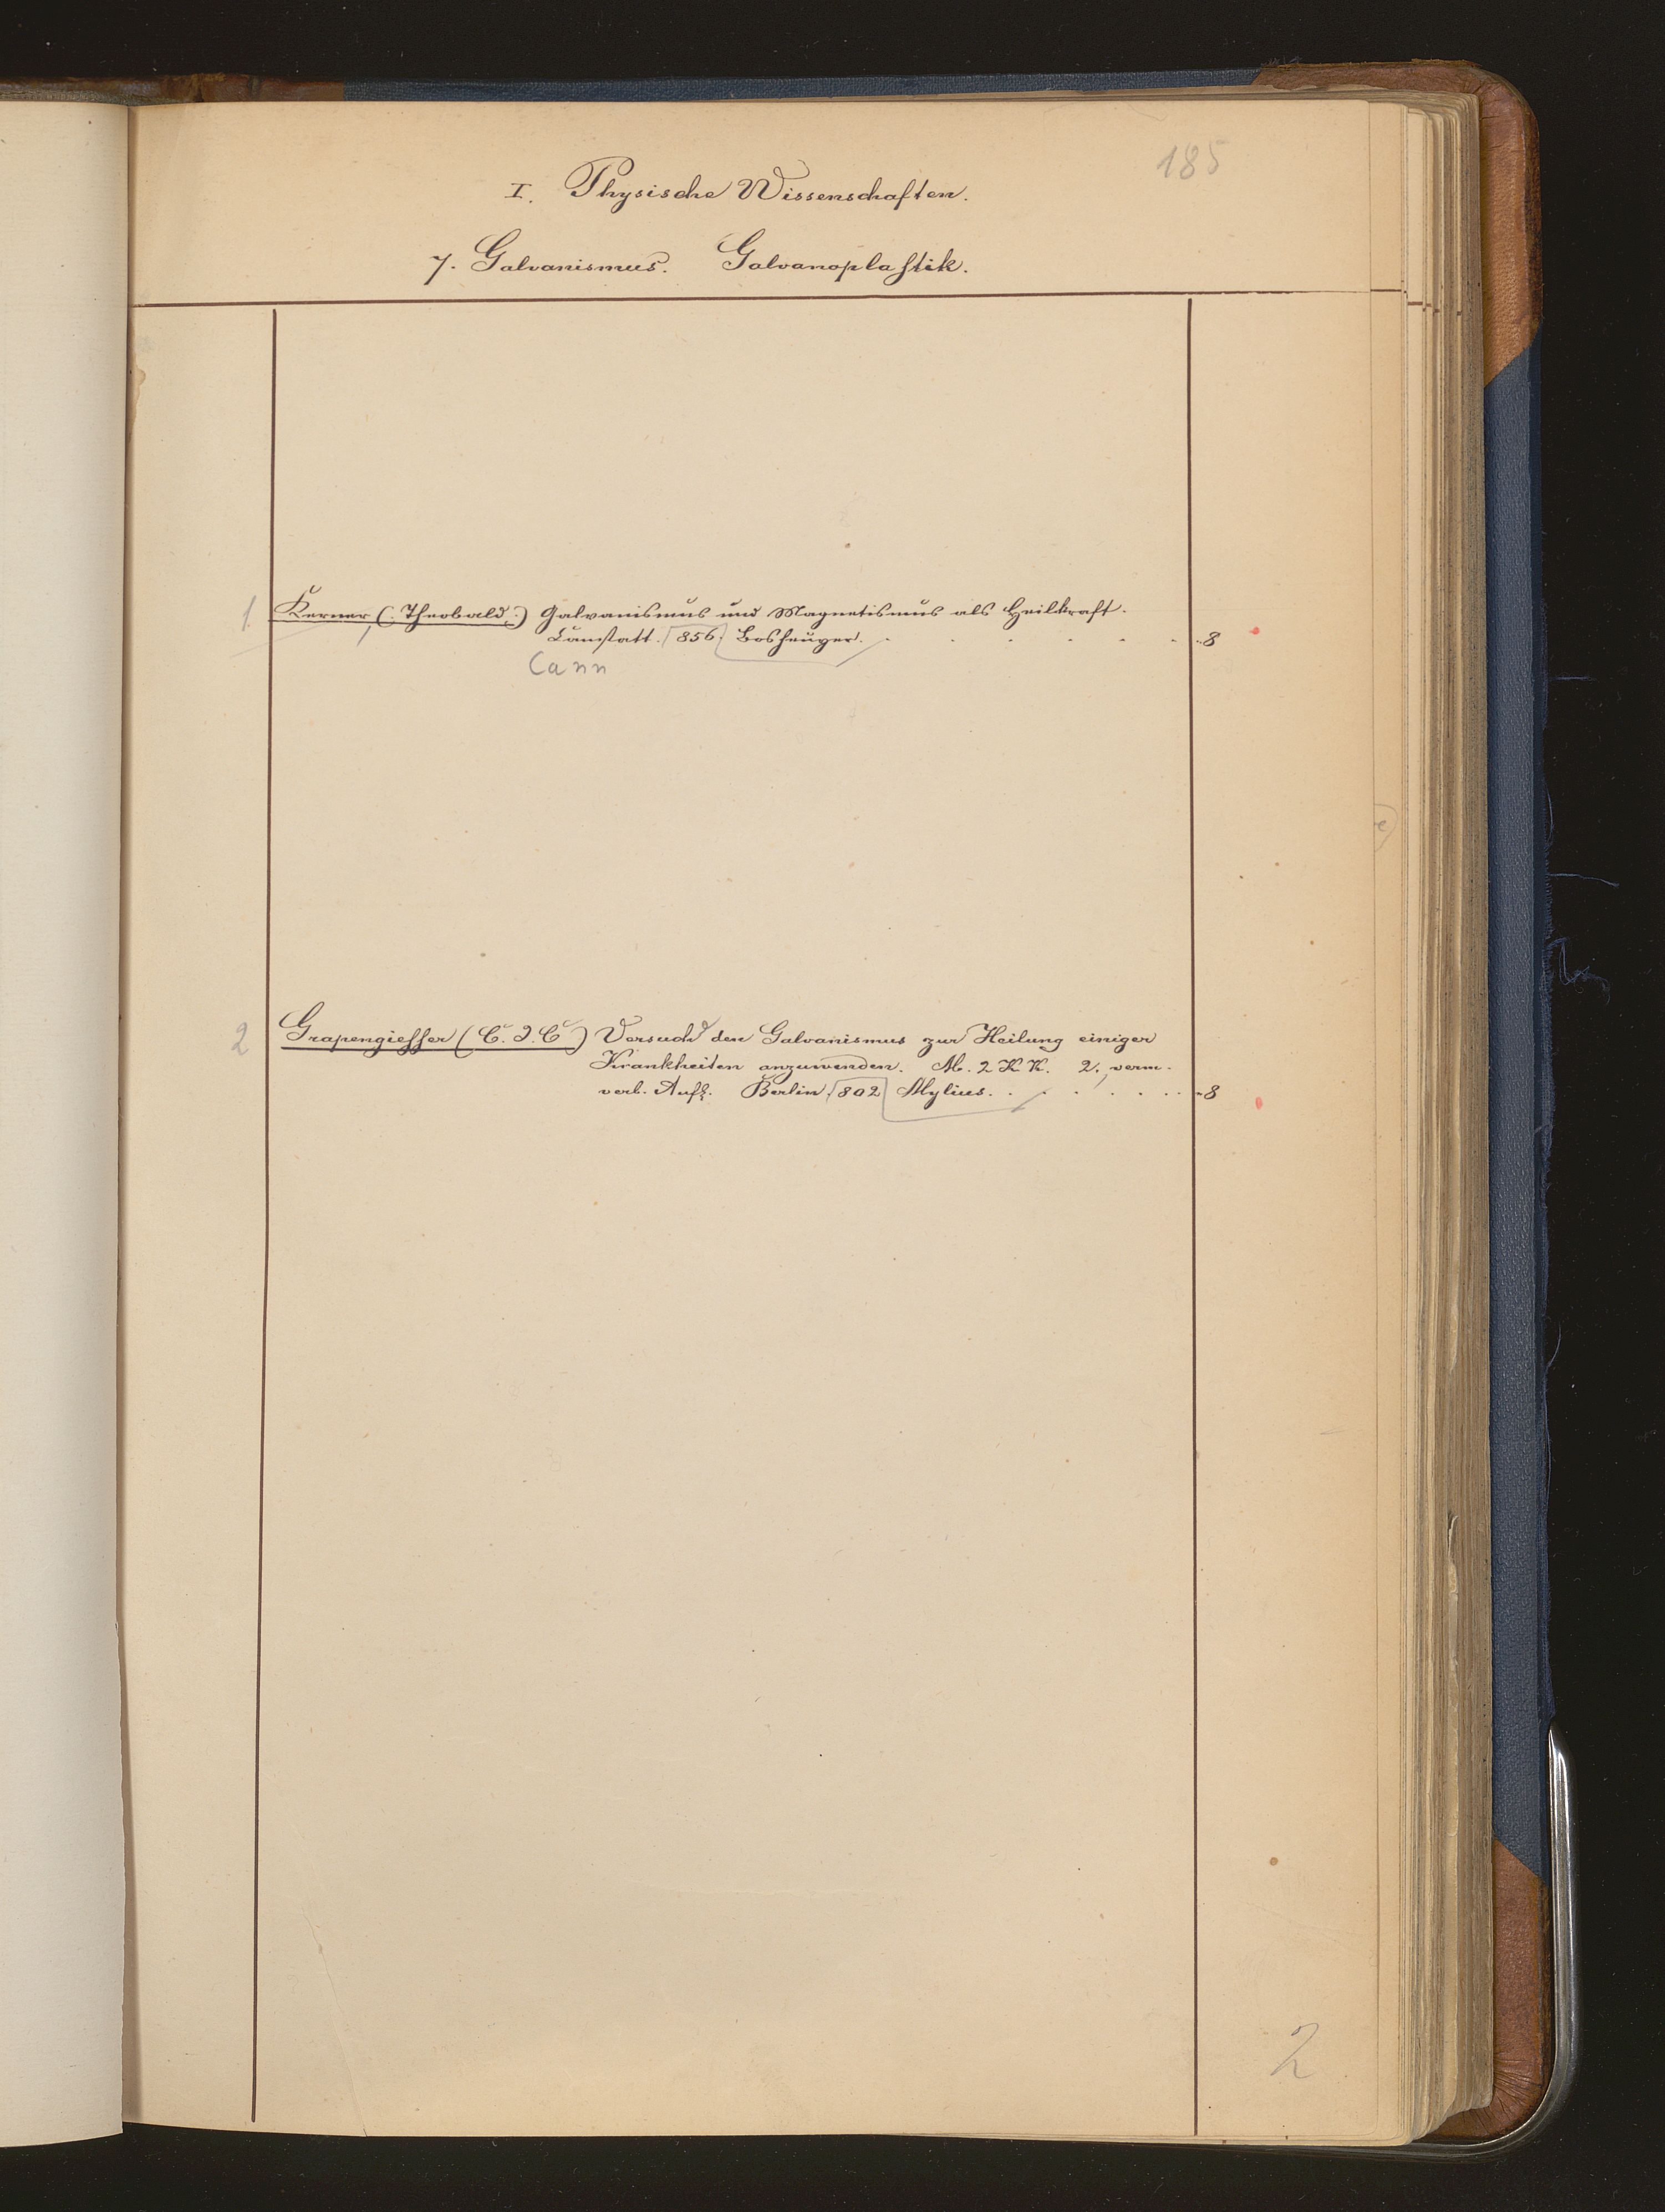 185
I. Physische Wissenschaften.
7. Galvanismus. Galvanoplastik.
1. Kerner, (: Theobald :) Galvanismus und Magnetismus als Heilkraft.
Canstatt. 856. Bosheuyer. . . . . . . 8
Cann
2 Grapengiesser (C. J. C.) Versuch den Galvanismus zur Heilung einiger
Krankheiten anzuwenden. M. 2 K K. 2, verm.
verb. Aufl. Berlin. 802 Mylius. . . . . . . . 8
2